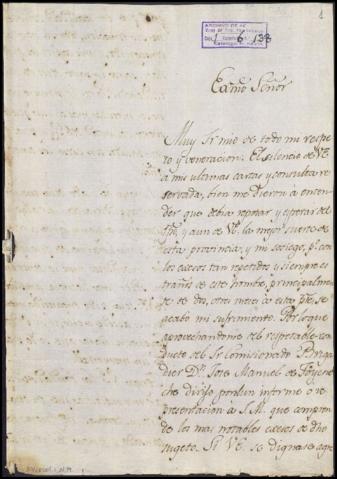 1
ARCHIVO DE
6
Exmo Señor
Muy Sr mio de todo mi respe-
to y veneracion: El silencio de VE
a mis ultimas cartas y consulta re-
servada, bien me dieron a enten-
der que debia esperar del
y aun de VE la mejor suerte de
esta provincia, y mi sosiego, pr
los excesos tan repetidos y siempre es-
traños de este hombre, principalmen-
te de dos, otres meses a esta pte, se
acabó mi sufrimiento. Por loque
aprovechandome del respetable con-
ducto del Sr Comisionado Briga-
dier Dn Jose Manuel de Goyene-
che dirijo por un informe o re-
presentacion a S.M. que compren-
de los mas notables excesos de dho
sugeto. Si VE se dignase